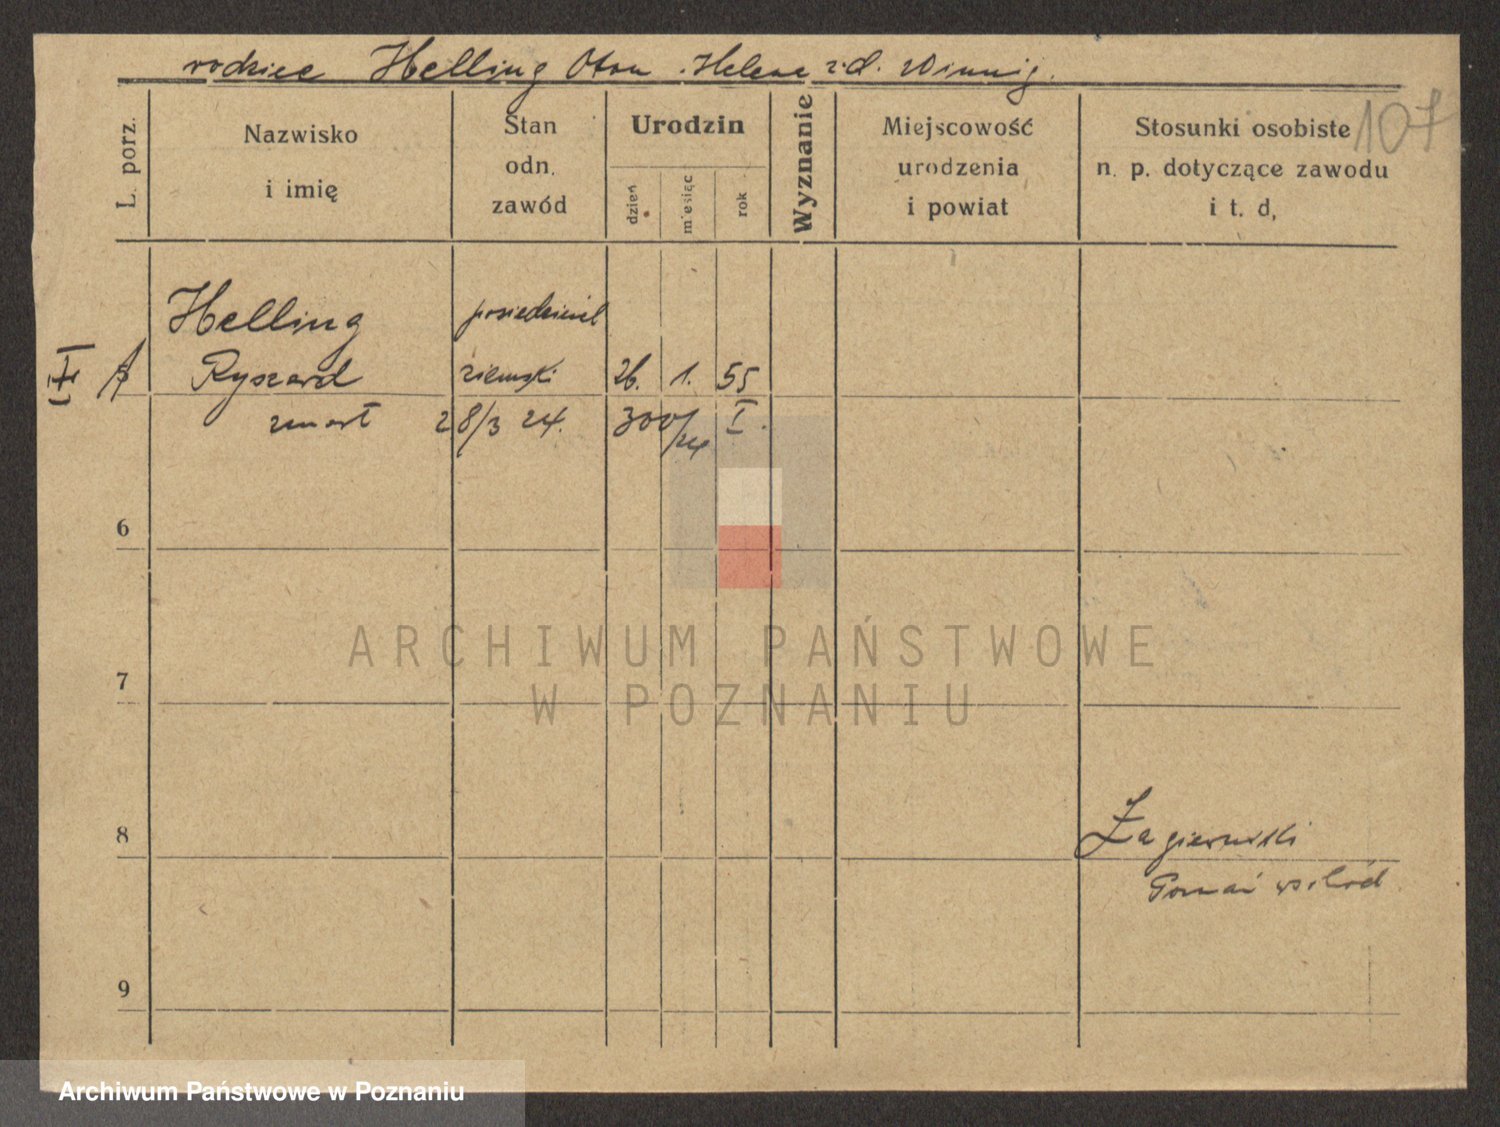 rodzice Helling Oton. Helena z d. Winnig.
107
L. porz.
Nazwisko
i imię
Stan
odn.
zawód
Urodzin
dzień
miesiąc
rok
Wyznanie
Miejscowość
urodzenia
i powiat
Stosunki osobiste
n. p. dotyczące zawodu
i t. d,
Helling
Ryszard
posiedziciel
ziemski
26. 1. 55
zmarł 28/3 24. 300/24 I.
6
ARCHIWUM PAŃSTWOWE
W POZNANIU
7
8
Poznań wschód
9
Archiwum Państwowe w Poznaniu